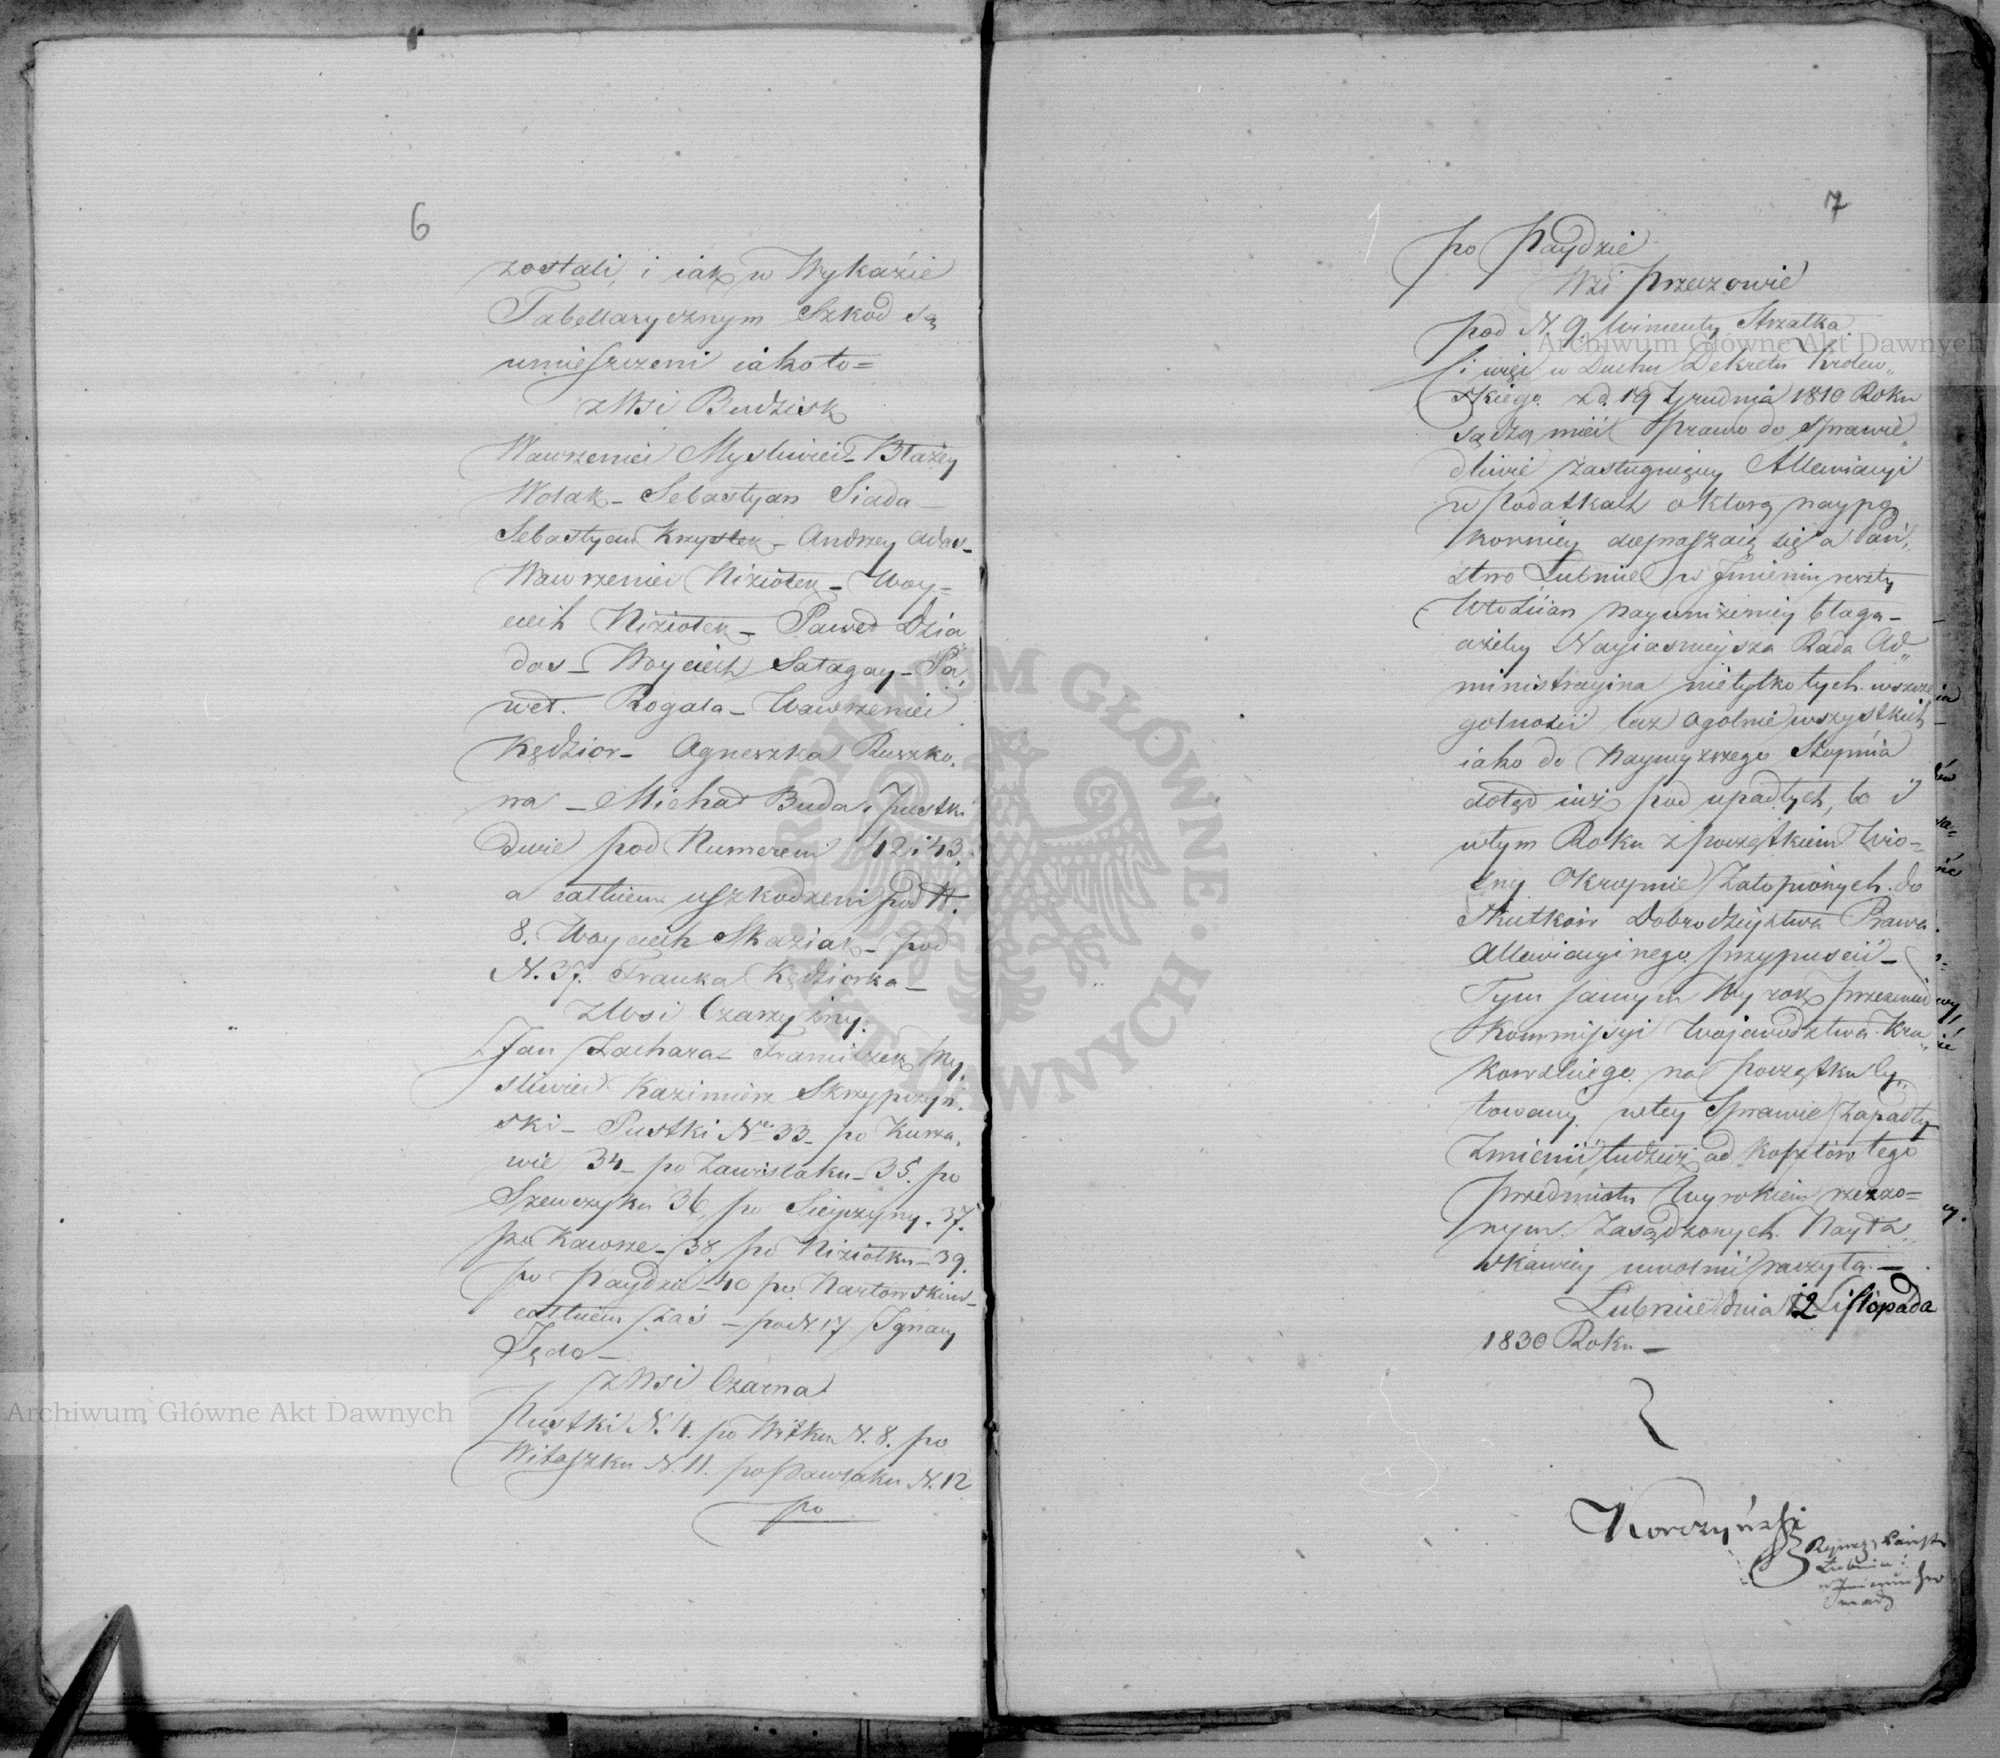 6
zostali, i iak w Wykazie
Tabellarycznym Szkod są
umieszczeni iako to =
z Wsi Budzisk
Wawrzeniec Mysliwiec - Błażey
Wolak - Sebastyan Siada -
Sebastyan Krystek - Andrzey Adas -
Wawrzeniec Niziołek - Woy=
ciech Niziołek - Paweł Dzia
das - Woyciech Satagay - Pa,
weł. Rogala - Wawrzeniec
Kędzior - Agnieszka Ruszko,
wa - Michał Buda, pustki
dwie pod Numerem 12 i 43,
a całkiem uszkodzeni pod N.
8. Woyciech Skaziak - pod
N. 37. Franka Kędziorka -
z Wsi Czarzyzny.
Jan Zachara - Franciszek My,
sliwiec Kazimierz Skrzypczyń,
ski - Pustki Nro 33 - po Kursa,
wie 34 - po Zawislaku - 35. po
Szewczyku 36, po Sieyczyny. 37.
po Kawsze - 38, po Niziołku - 39.
po Paydzie - 40 po Nartowskim -
całkiem zaś - pod N. 17 Ignacy
Jęda -
z Wsi Czarna
Pustki N. 4. po Witku N. 8. po
Witaszku N. 11. po Pawlaku N. 12
po
7
po Paydzie
Wsi Przeczowie
pod N. 9. Wincenty Strzałka
Ci więc w Duchu Dekretu Królew,,
skiego z d. 19 Grudnia 1810 Roku
sądzą mieć Prawo do sprawie,,
dliwie zasłużoney Allewiacyi
w Podatkach o którą naypo
korniey dopraszaią się a Pań,
stwo Łubnice w Imieniu reszty
Włościan nayuniżeniey błaga -
ażeby Nayiaśnieysza Rada Ad,,
ministracyina nietylko tych wszcze
gólności lecz ogólnie wszystkich -
iako do Naywyższego Stopnia
dotąd iuż pod upadłych, bo i
wtym Roku z początkiem Wio=
sny Okropnie Zatopionych. do
Skutków Dobrodzieystwa Prawa
Allewiacyinego przypuścić -
Tym samym Wyrok przeciwny
Kommissyi Woiewództwa Kra,,
kowskiego na początku cy,,
towany w tey Sprawie zapadły
zmienić tudzież od kosztów tego
przedmiotu Wyrokiem rzeczo=
nym Zasądzonych. Nayła,,
skawiey uwolnić raczyła. -
Łubnice dnia 12 Listopada
1830 Roku -
Korczyński
Łubnice
w Imieniu
Archiwum Główne Akt Dawnych
Archiwum Główne Akt Dawnych
ARCHIWUM GŁÓWNE · AKT DAWNYCH ·